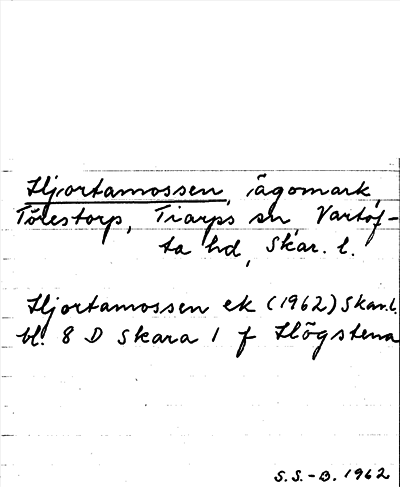 Hjortamossen, ägomark
Torestorp, Tiarps sn Vartof-
ta hd, Skar. l.
Hjortamossen ek (1962) Skar.l.
bl. 8 D Skara 1 f Högstena
S.S.-B. 1962